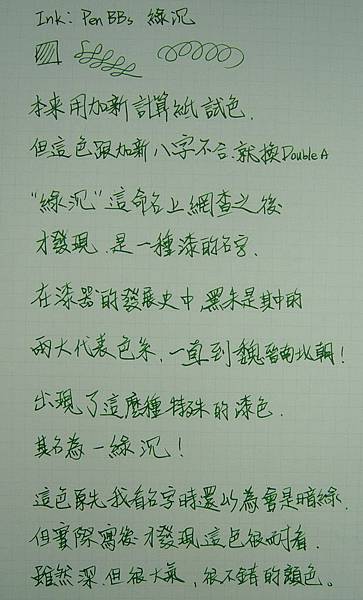 Ink: PenBBs 綠沉
本來用加新計算紙試色.
但這色跟加新八字不合.就換Double A
"綠沉"這命名上網查之後
才發現.是一種漆的名字.
在漆器的發展史中,黑朱是其中的
兩大代表色系,一直到魏晉南北朝!
出現了這麼種特殊的漆色.
其名為一綠沉!
這色原先我看名字時還以為會是暗綠.
但實際寫後才發現這色很耐看.
雖然深.但很大氣,很不錯的顏色。